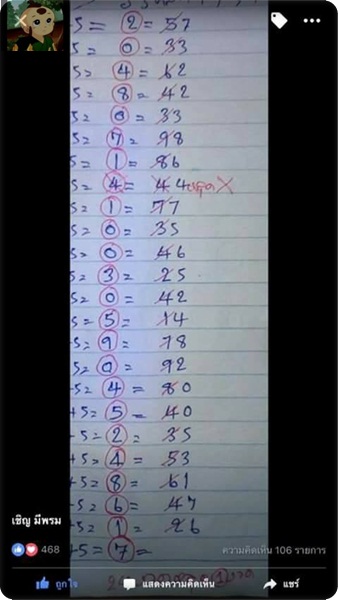 -5 = 2 = 57
5 = 0 = 33
5 = 4 = 62
5 = 8 = 42
5 = 0 = 33
5 = 7 = 98
5 = 1 = 86
5 = 4 = 44 หลุด X
5 = 1 = 77
5 = 0 = 35
5 = 0 = 46
5 = 3 = 25
5 = 0 = 42
5 = 5 = 14
5 = 9 = 78
5 = 0 = 92
-5 = 4 = 80
+5 = 5 = 40
+5 = 2 = 35
+5 = 4 = 53
+5 = 8 = 61
+5 = 6 = 47
+5 = 1 = 26
+5 = 7 =
เชิญ มีพรม
468 ความคิดเห็น 106 รายการ
ถูกใจ แสดงความคิดเห็น แชร์